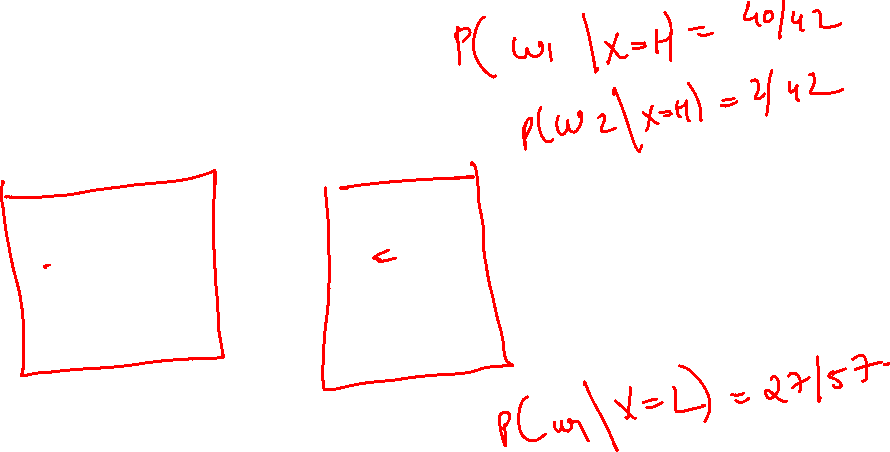 P( w1 | X=H) = 40/42
P(w2 | X=H) = 2/42
P(w1 | X=L) = 27/57